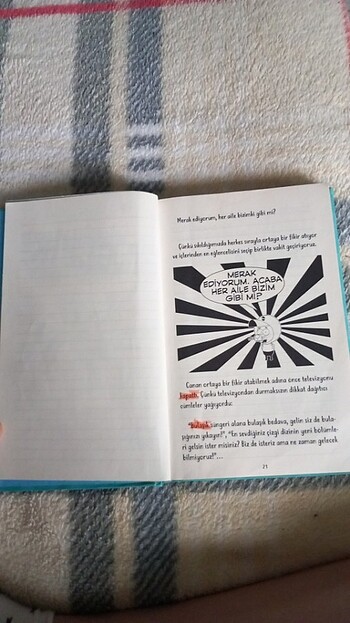 Merak ediyorum, her aile bizimki gibi mi?
Çünkü sıkıldığımızda herkes sırayla ortaya bir fikir atıyor
ve içlerinden en eğlencelisini seçip birlikte vakit geçiriyoruz.
MERAK
EDİYORUM. ACABA
HER AİLE BİZİM
GİBİ Mİ?
Canan ortaya bir fikir atabilmek adına önce televizyonu
kapattı. Çünkü televizyondan durmaksızın dikkat dağıtıcı
cümleler yağıyordu:
"Bulaşık süngeri alana bulaşık bedava, gelin siz de bula-
şığınızı yıkayın!", "En sevdiğiniz çizgi dizinin yeni bölümle-
ri gelsin ister misiniz? Biz de isteriz ama ne zaman gelecek
bilmiyoruz!"...
21